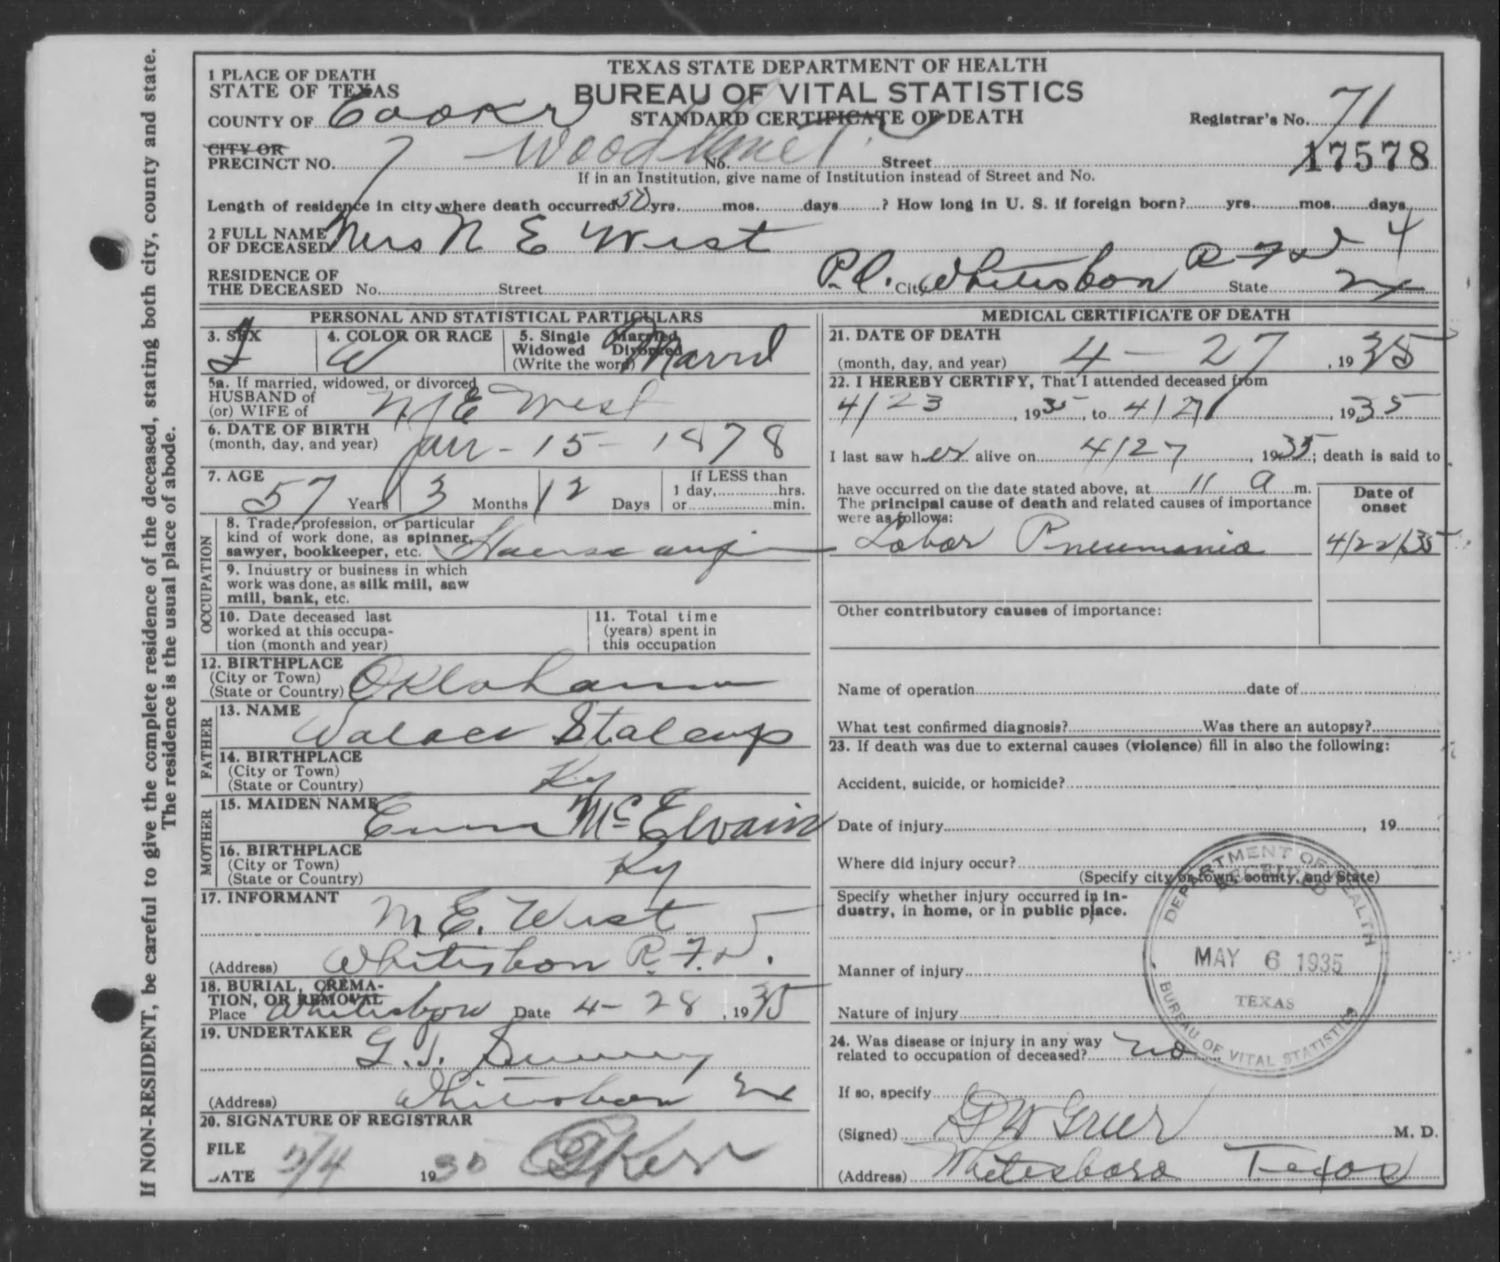 If NON-RESIDENT, be careful to give the complete residence of the deceased, stating both city, county and state.
The residence is the usual place of abode.
TEXAS STATE DEPARTMENT OF HEALTH
BUREAU OF VITAL STATISTICS
STANDARD CERTIFICATE OF DEATH
1 PLACE OF DEATH
STATE OF TEXAS
COUNTY OF Cooke
Registrar's No. 71
17578
CITY OR
PRECINCT NO. 7 No. Street
If in an Institution, give name of Institution instead of Street and No.
Length of residence in city where death occurred 50 yrs. mos. days ? How long in U. S. if foreign born? yrs. mos. days
2 FULL NAME
OF DECEASED Mrs N E West
RESIDENCE OF
THE DECEASED No. Street P.O. City Whitesboro R F D 4 State Tx
PERSONAL AND STATISTICAL PARTICULARS
3. SEX F
4. COLOR OR RACE W
5. Single Married
Widowed Divorced
(Write the word) Marrid
5a. If married, widowed, or divorced
HUSBAND of
(or) WIFE of E West
6. DATE OF BIRTH
(month, day, and year) Jan - 15 - 1878
7. AGE 57 Years 3 Months 12 Days
If LESS than
1 day, hrs.
or min.
OCCUPATION
8. Trade, profession, or particular
kind of work done, as spinner,
sawyer, bookkeeper, etc.
9. Industry or business in which
work was done, as silk mill, saw
mill, bank, etc.
10. Date deceased last
worked at this occupa-
tion (month and year)
11. Total time
(years) spent in
this occupation
12. BIRTHPLACE
(City or Town)
(State or Country) Oklahoma
FATHER
13. NAME Walace Stalcup
14. BIRTHPLACE
(City or Town)
(State or Country) Ky
MOTHER
15. MAIDEN NAME Emma McElvain
16. BIRTHPLACE
(City or Town)
(State or Country) Ky
17. INFORMANT M. E. West
(Address) Whitesboro R. F. D.
18. BURIAL, CREMA-
TION, OR REMOVAL
Place Whitesboro Date 4-28, 1935
19. UNDERTAKER G. J.
(Address) Whitesboro Tx
20. SIGNATURE OF REGISTRAR
FILE
DATE 5/4 1935
MEDICAL CERTIFICATE OF DEATH
21. DATE OF DEATH
(month, day, and year) 4-27, 1935
22. I HEREBY CERTIFY, That I attended deceased from
4/23, 1935, to 4/27, 1935
I last saw her alive on 4/27, 1935; death is said to
have occurred on the date stated above, at 11 a m.
The principal cause of death and related causes of importance
were as follows:
Date of
onset
Lobar Pneumonia 4/22/35
Other contributory causes of importance:
Name of operation date of
What test confirmed diagnosis? Was there an autopsy?
23. If death was due to external causes (violence) fill in also the following:
Accident, suicide, or homicide?
Date of injury , 19
Where did injury occur?
(Specify city or town, county, and State)
Specify whether injury occurred in in-
dustry, in home, or in public place.
Manner of injury
Nature of injury
24. Was disease or injury in any way
related to occupation of deceased? no
If so, specify
(Signed) D W Greer M. D.
(Address) Whitesboro Texas
DEPARTMENT OF HEALTH
RECEIVED
MAY 6 1935
TEXAS
BUREAU OF VITAL STATISTICS